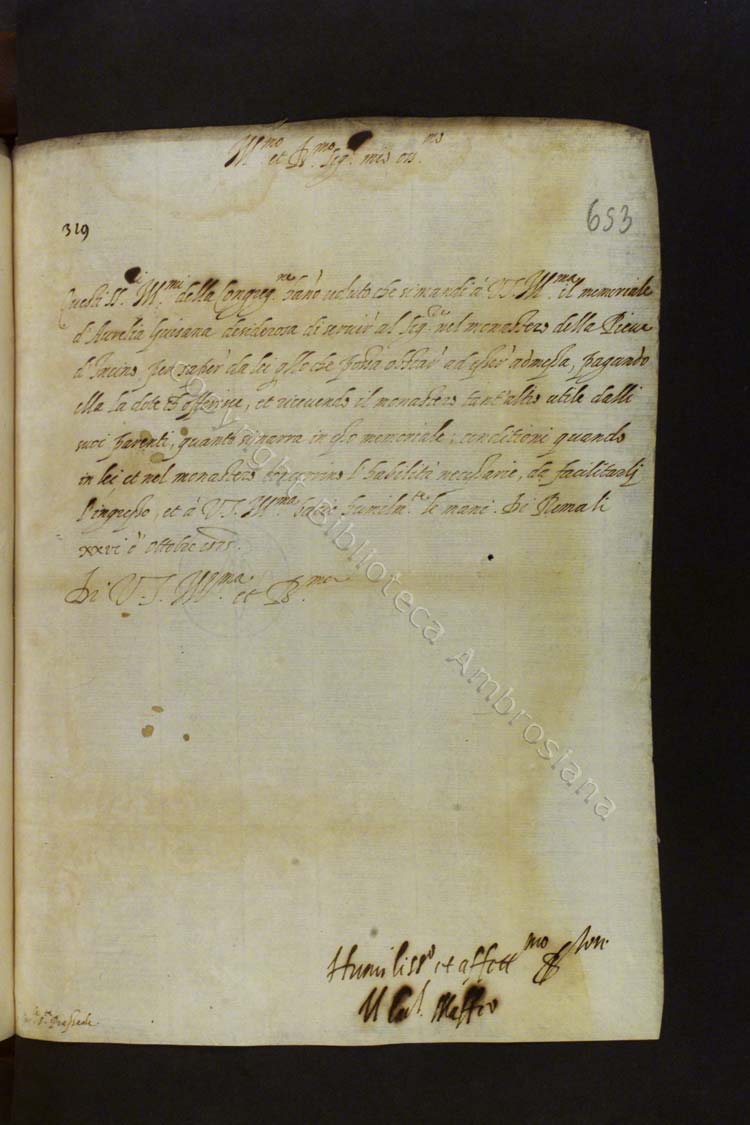 Ill.mo et R.mo Sig.r mio oss.mo
653
319
Questi SS.ri Ill.mi della Congreg.ne hano veduto che si mandi à V.S. Ill.ma il memoriale
d'Aurelia Guisana desiderosa di servir' al Sig.re nel monastero della Pieve
d'Incino per saper' da lei q̃llo che possa ostar' ad esser' admessa, pagando
ella la dote che offerisce, et ricevendo il monastero tant'altro utile dalli
suoi parenti, quanto si narra in esso memoriale; conditioni quando
in lei et nel monastero concorrino l'habilità necessarie, da facilitarli
l'ingresso, et à V.S. Ill.ma bacio humilm.te le mani. Di Roma li
xxvi d'Ottobre 1575.
Di V.S. Ill.ma et R.ma
Humiliss.o et affett.mo ser.
Il Car.l Maffeo
S.ta Prassede
Copyright Biblioteca Ambrosiana